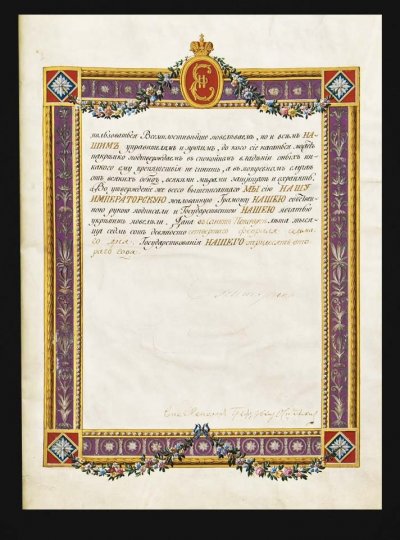 пользоваться Всемилостивѣйше повелѣваемъ, но и всѣмъ НА-
ШИМЪ управителямъ и прочимъ, до кого сіе касаться можетъ
накрѣпко подтверждаемъ въ спокойномъ владѣніи оныхъ ни-
какого ему препятствія не чинить, а въ потребномъ случаѣ
отъ всякихъ обидъ, всякими мѣрами защищать и охранять;
а во утвержденіе же всего вышеписаннаго МЫ сію НАШУ
ИМПЕРАТОРСКУЮ жалованную Грамоту НАШЕЮ собствен-
ною рукою подписали и Государственною НАШЕЮ печатью
укрѣпить повелѣли. Дана въ Санктъ Петербургѣ лѣта тыся-
ща седмь сотъ девяносто четвертаго февраля седьма-
го дня. Государствованія НАШЕГО тридесять вто-
раго года.